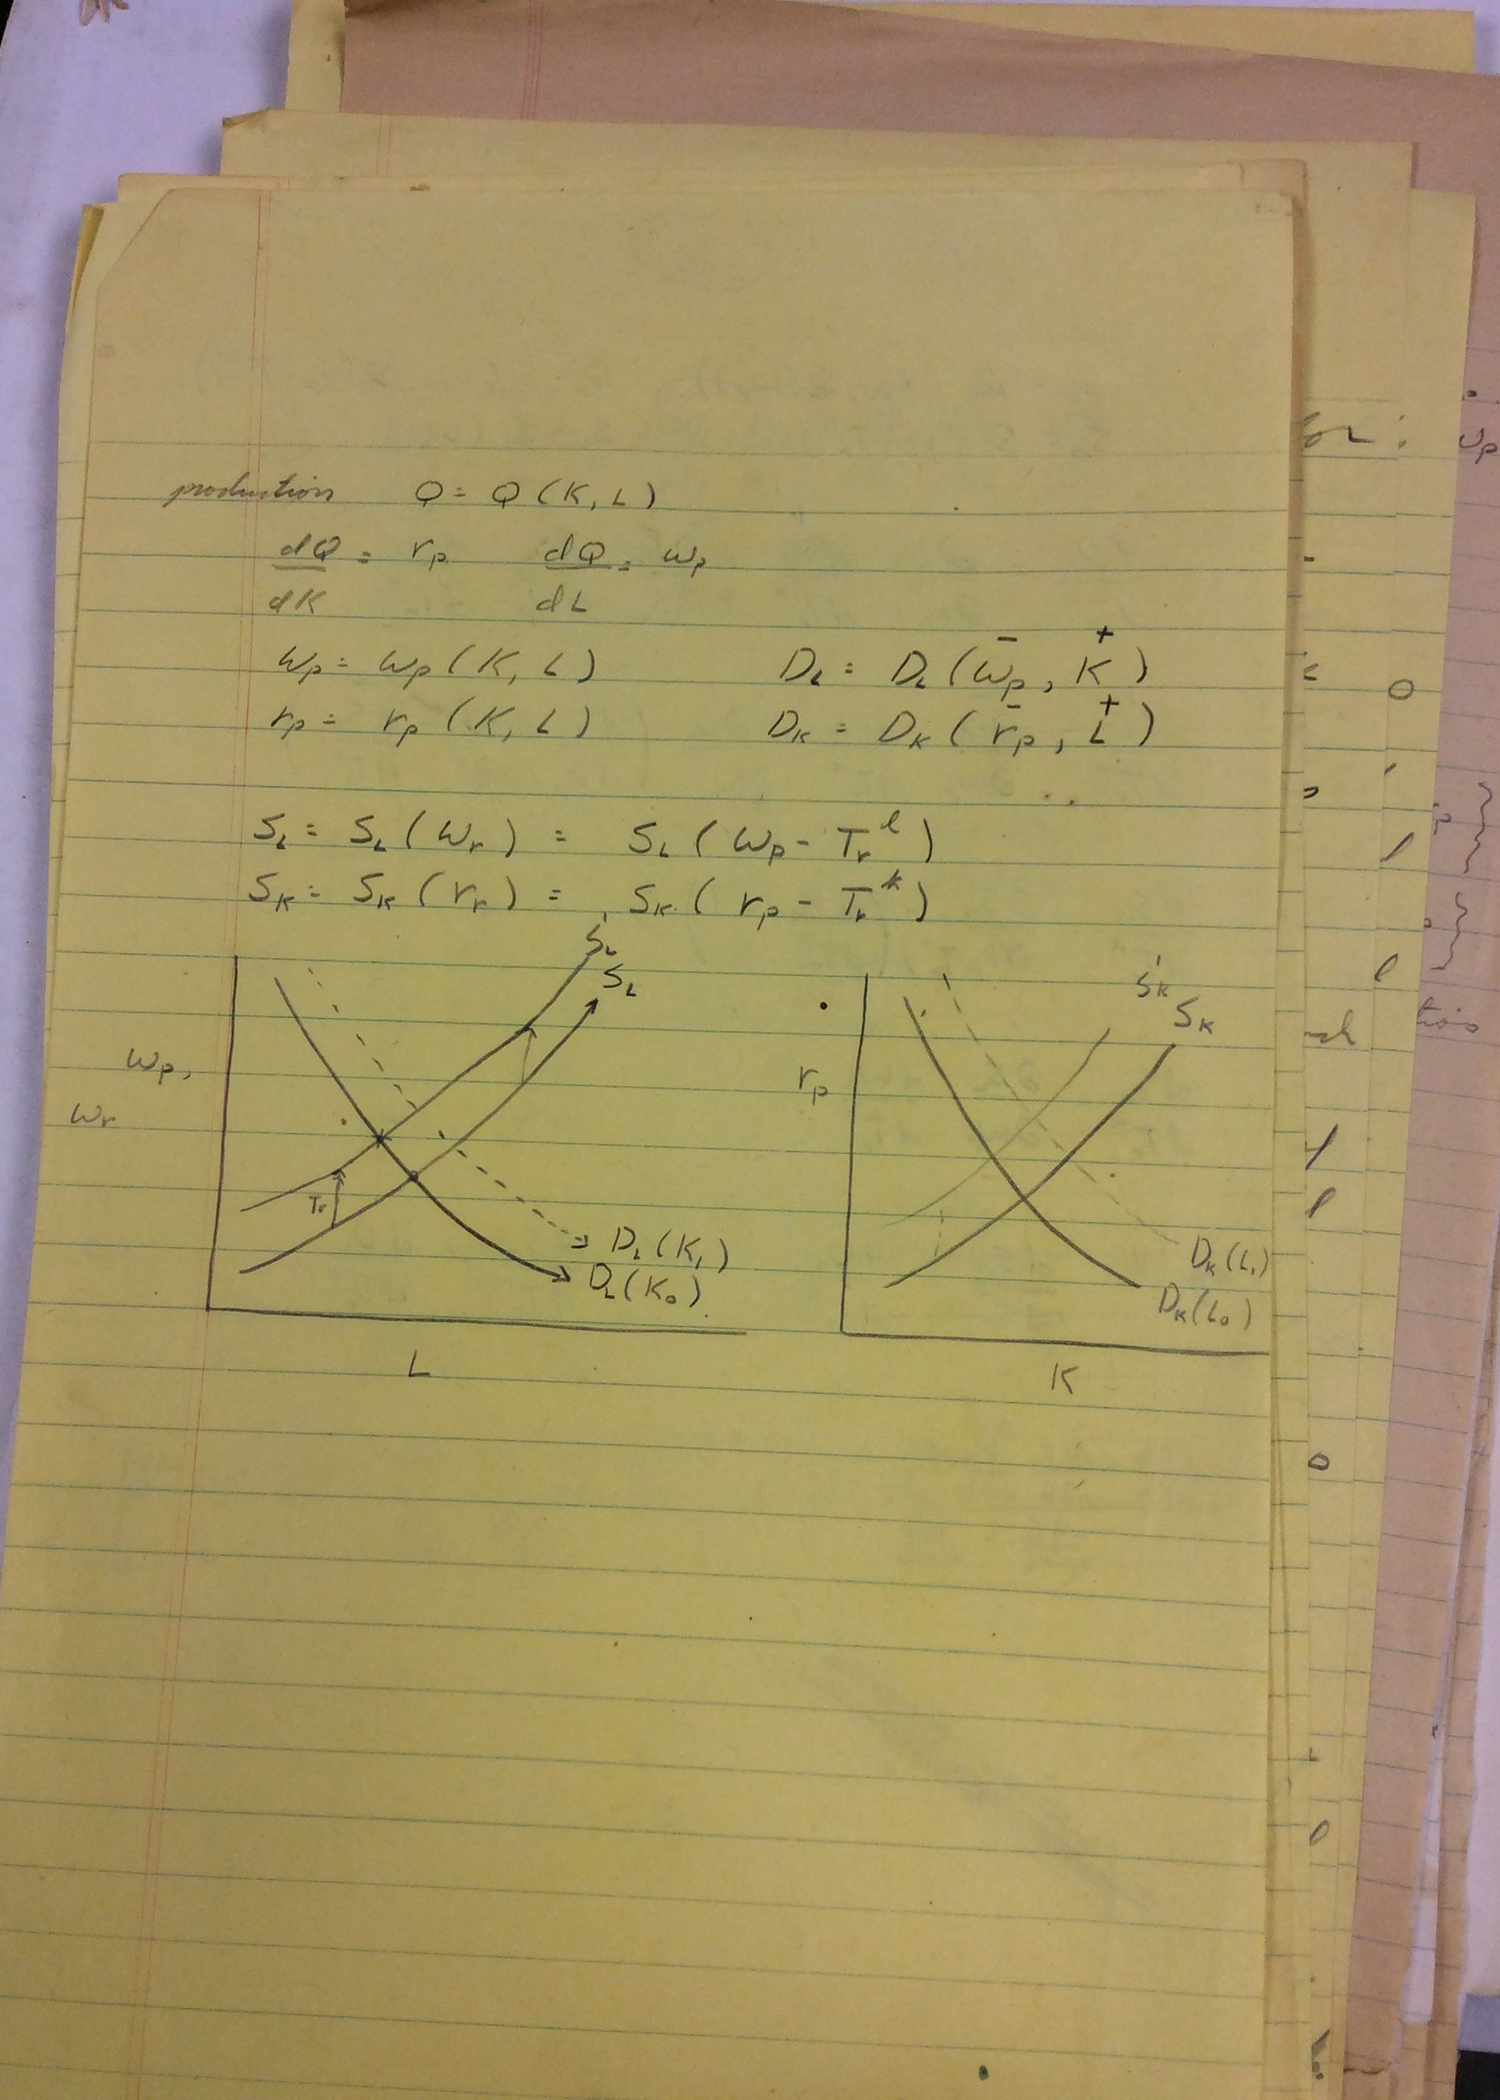 production Q = Q (K, L)
dQ/dK = rp dQ/dL = wp
wp = wp (K, L) DL = DL (w̄p, K⁺)
- +
rp = rp (K, L) DK = DK (rp, L)
- +
SL = SL (wr) = SL (wp - Tr^l)
SK = SK (rr) = SK (rp - Tr^k)
SL'
SL
wp,
wr
Tr
DL (K1)
DL (K0)
L
SK'
SK
rp
DK (L1)
DK (L0)
K